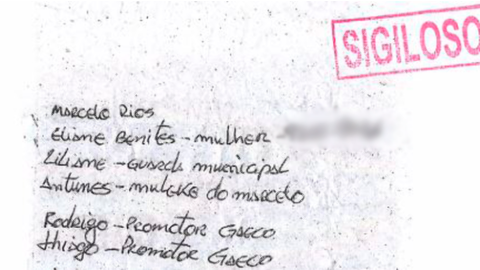 SIGILOSO
Marcelo Rios
Eliane Benites - mulher -
Liliane - Guarda municipal
Antunes - muleke do marcelo
Rodrigo - Promotor Gaeco
thiago - Promotor Gaeco